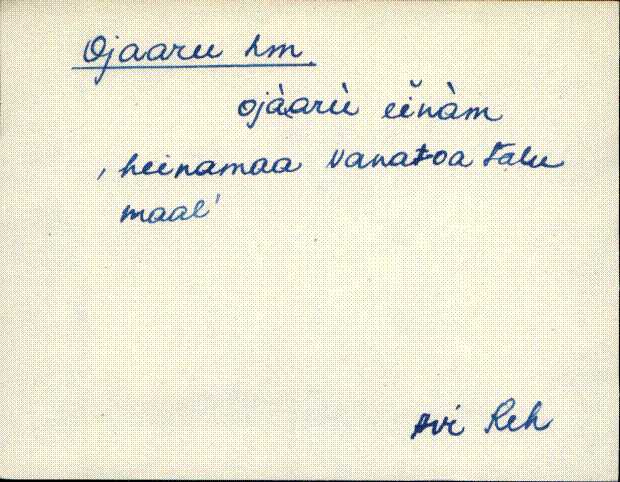 Ojaaru hm.
ojàarù eĭnàm
, heinamaa Vanatoa talu
maal'
Avi Reh